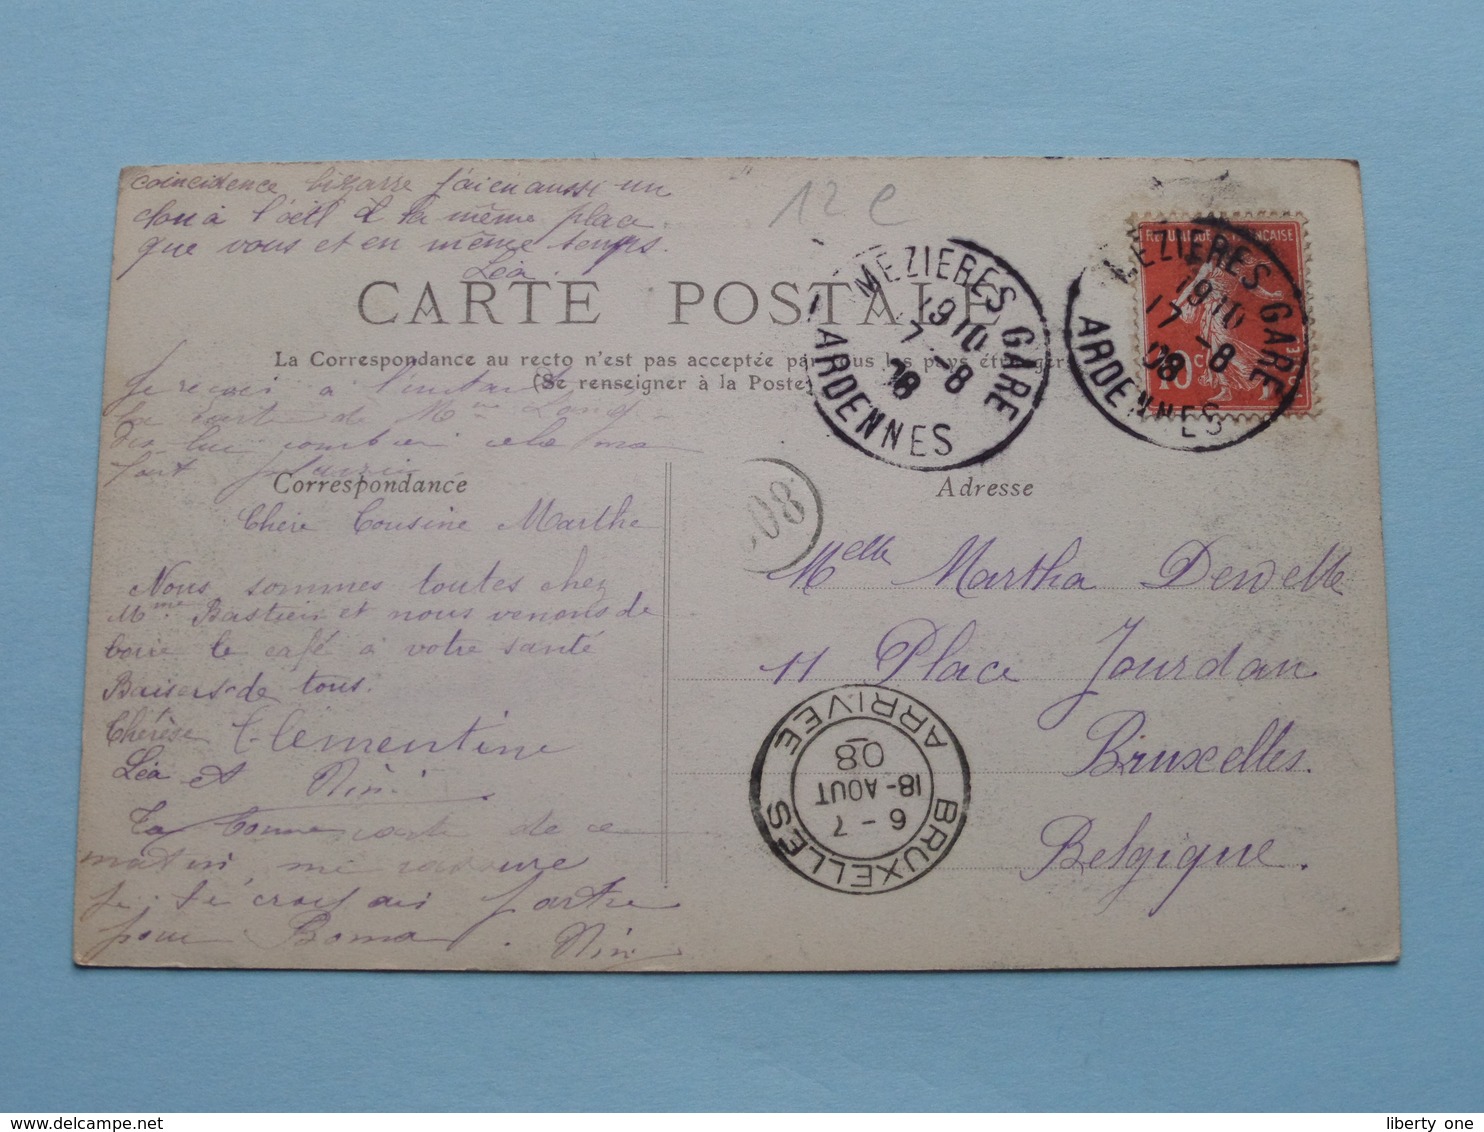 coincidence bizarre j'ai eu aussi un
clou à l'œil à la même place
que vous et en même temps.
Léa
12 e
CARTE POSTALE
La Correspondance au recto n'est pas acceptée par tous les pays étrangers
(Se renseigner à la Poste)
Je reçois à l'instant
la carte de Mme
Dis lui combien cela m'a
fait plaisir
Correspondance
Adresse
MEZIERES GARE
19 10
17 -8
08
ARDENNES
REPUBLIQUE FRANÇAISE
10 c
POSTES
MEZIERES GARE
19 10
17 -8
08
ARDENNES
08
Chère Cousine Marthe
Nous sommes toutes chez
Mme Bastien et nous venons de
boire le café à votre santé
Baisers de tous.
Thérèse Clementine
Léa et Nini
Ta bonne carte de ce
matin, me rassure
je te croyais partie
pour Boma. Nini
Melle Martha Dewelle
11 Place Jourdan
Bruxelles.
Belgique.
BRUXELLES ARRIVEE
6 - 7
18 - AOUT
08
liberty one